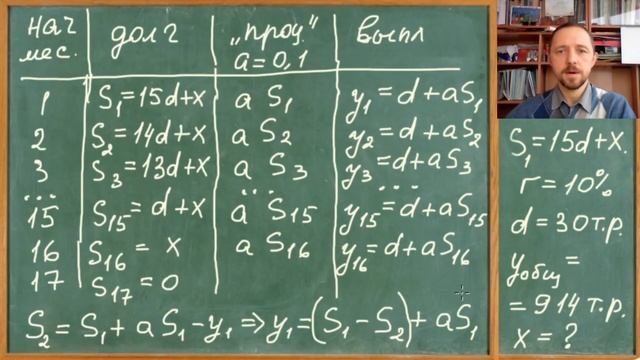 нач мес. долг „проц." a=0,1 выпл
1 S₁=15d+x a S₁ y₁=d+aS₁
2 S₂=14d+x a S₂ y₂=d+aS₂
3 S₃=13d+x a S₃ y₃=d+aS₃
... ... ...
15 S₁₅=d+x a S₁₅ y₁₅=d+aS₁₅
16 S₁₆=x a S₁₆ y₁₆=d+aS₁₆
17 S₁₇=0
S₂=S₁+aS₁-y₁⇒y₁=(S₁-S₂)+aS₁
S₁=15d+x.
r=10%
d=30т.р.
yобщ=
=914т.р.
x=?